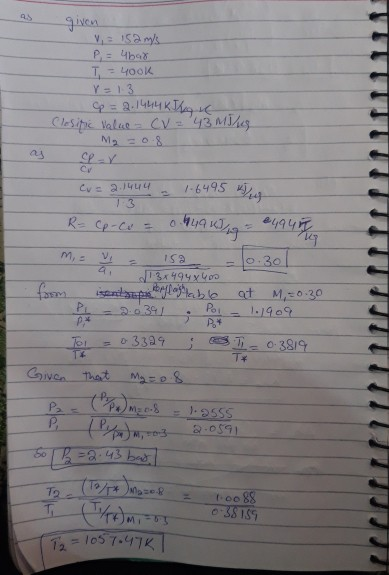 as given
V₁ = 152 m/s
P₁ = 4bar
T₁ = 400K
γ = 1.3
Cp = 2.1444 KJ/kg K
Value = CV = 43 MJ/kg
M₂ = 0.8
as Cp/Cv = γ
Cv = 2.1444/1.3 = 1.6495 KJ/kg
R = Cp - Cv = 0.4949 KJ/kg = 494 J/kg
M₁ = V₁/a₁ = 152/√1.3×494×400 = 0.30
from table at M₁ = 0.30
P₁/P* = 2.0391 ; P₀₁/P₀* = 1.1909
T₀₁/T* = 0.3329 ; T₁/T* = 0.3819
Given that M₂ = 0.8
P₂/P₁ = (P₂/P*)M₂=0.8 / (P₁/P*)M₁=0.3 = 1.2555/2.0591
So P₂ = 2.43 bar
T₂/T₁ = (T₂/T*)M₂=0.8 / (T₁/T*)M₁=0.3 = 1.0088/0.38159
T₂ = 1057.47K